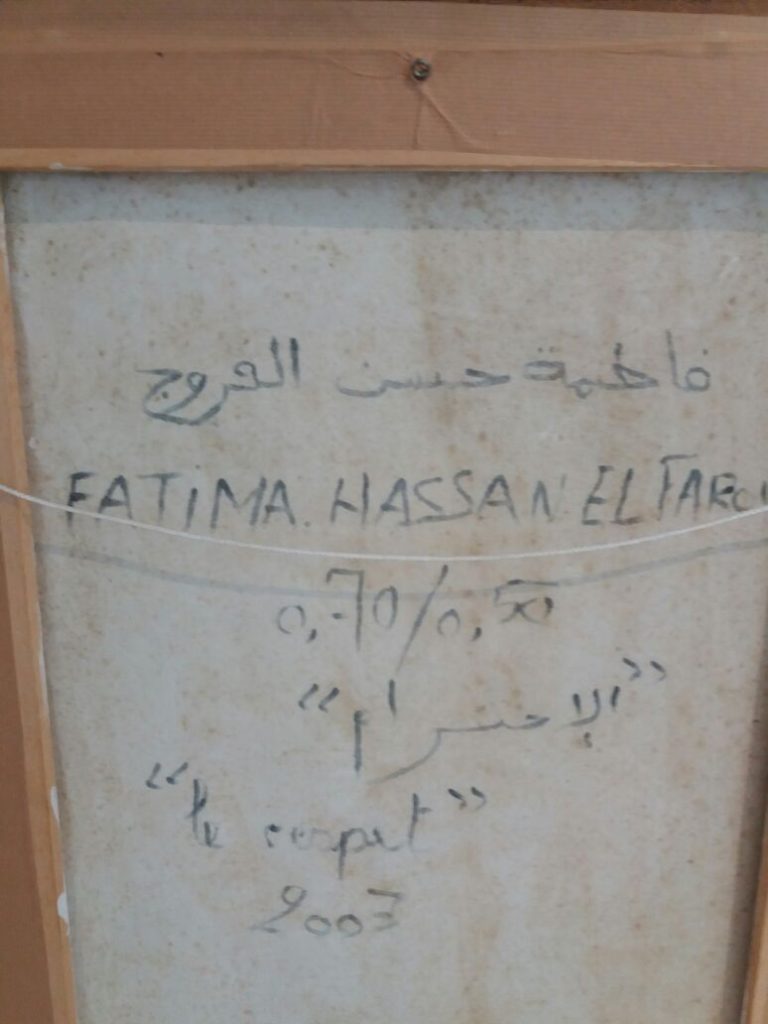 فاطمة حسن الفروج
FATIMA. HASSAN EL FAROU
0,70/0,50
"الإحترام"
"le respect"
2003